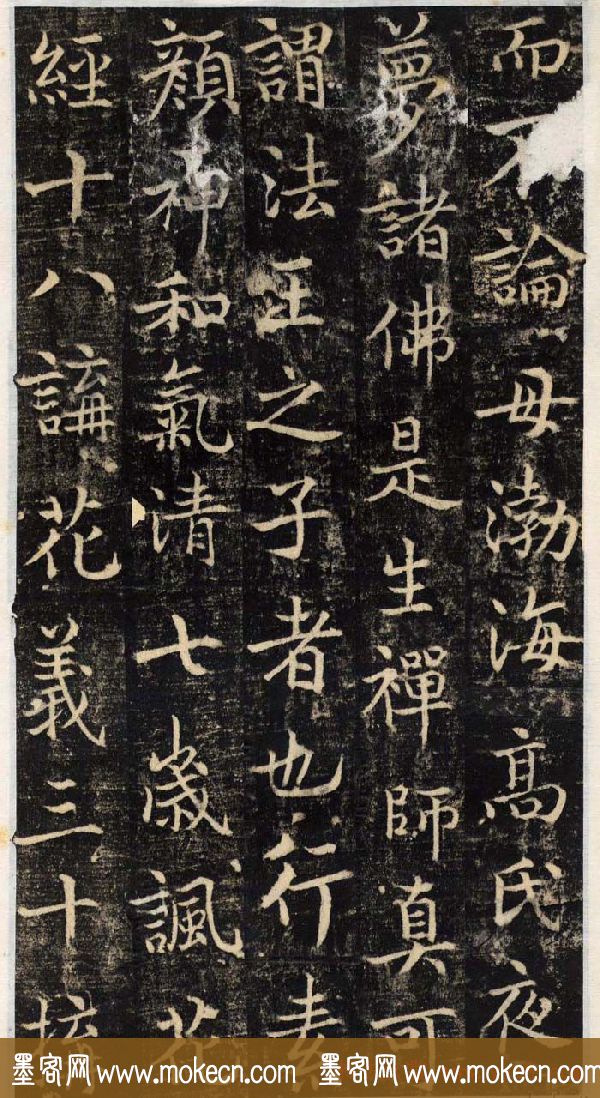 而不論母渤海高氏夜
夢諸佛是生禪師真可
謂法王之子者也行素
顏神和氣清七歲諷花
經十八講花義三十
墨客网 www.mokecn.com 墨客网 www.mokecn.com